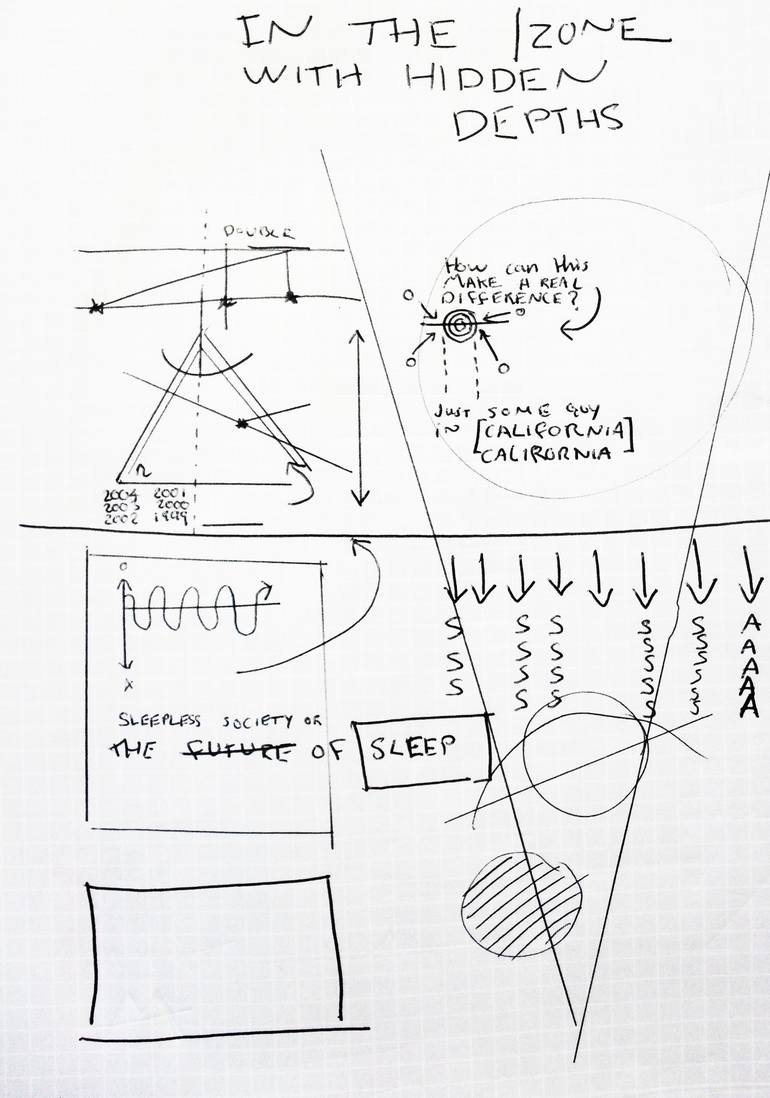 IN THE ZONE
WITH HIDDEN
DEPTHS
DOUBLE
How can this
MAKE A REAL
DIFFERENCE?
JUST SOME GUY
IN [CALIFORNIA]
CALIFORNIA
2004 2001
2003 2000
2002 1999
S S S S S A
S S S S S A
S S S S S A
S S S S A
S S A
X
SLEEPLESS SOCIETY OR
THE FUTURE OF SLEEP